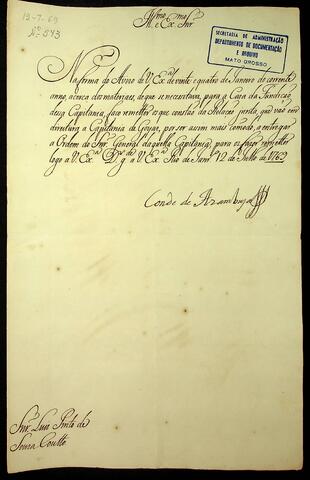 12-7-69
Nº 543
Illmo e Exmo Snr
SECRETARIA DE ADMINISTRAÇÃO
DEPARTAMENTO DE DOCUMENTAÇÃO
E ARQUIVO
MATO GROSSO
Na forma do Aviso de V. Exª de vinte e quatro de Janeiro do corrente
anno, acerca dos materiaes, de que se necessitava, para a Caza da Fundição
dessa Capitania, faço remetter os que constão da Relação junta, que vão em
direitura a Capitania de Goyaz, por ser assim mais comodo, a entregar
a Ordem do Snr. General daquella Capitania, para os fazer remetter
logo a V. Exª D.s g.de a V. Exª Rio de Janrº 12 de Julho de 1769
Conde de Azambuja
Snr. Luiz Pinto de
Souza Coutto